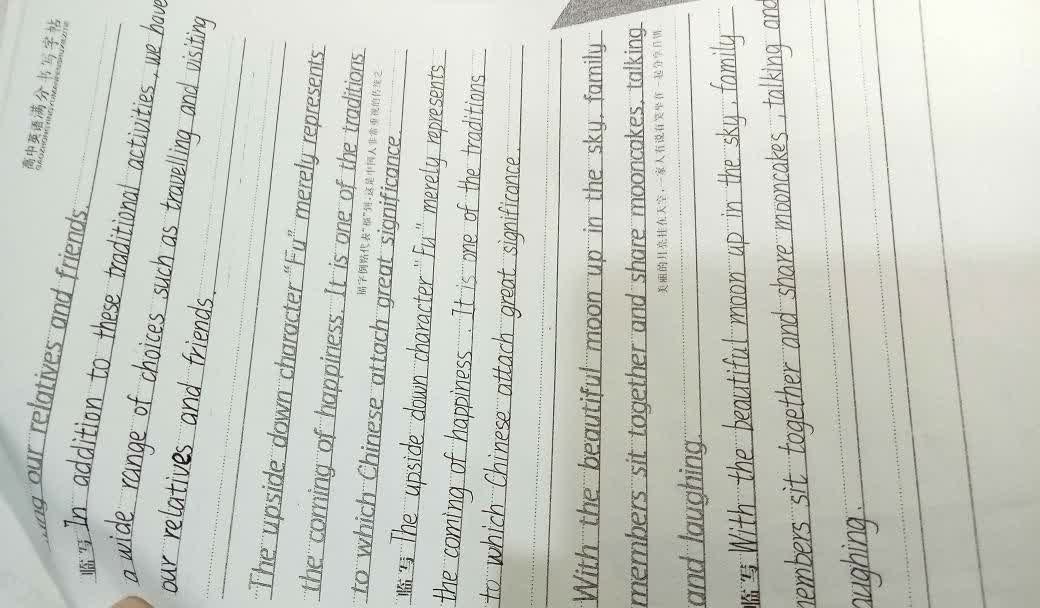 高中英语满分书写字帖
GAOZHONGYINGYUMANFENSHUXIEZITIE
our relatives and friends.
临写 In addition to these traditional activities, we have
a wide range of choices such as travelling and visiting
our relatives and friends.
The upside down character "Fu" merely represents
the coming of happiness. It is one of the traditions
to which Chinese attach great significance.
临写 The upside down character "Fu" merely represents
the coming of happiness. It is one of the traditions
to which Chinese attach great significance.
With the beautiful moon up in the sky, family
members sit together and share mooncakes, talking
美丽的月亮挂在天空，一家人有说有笑坐在一起分享月饼
and laughing.
临写 With the beautiful moon up in the sky, family
members sit together and share mooncakes, talking and
laughing.